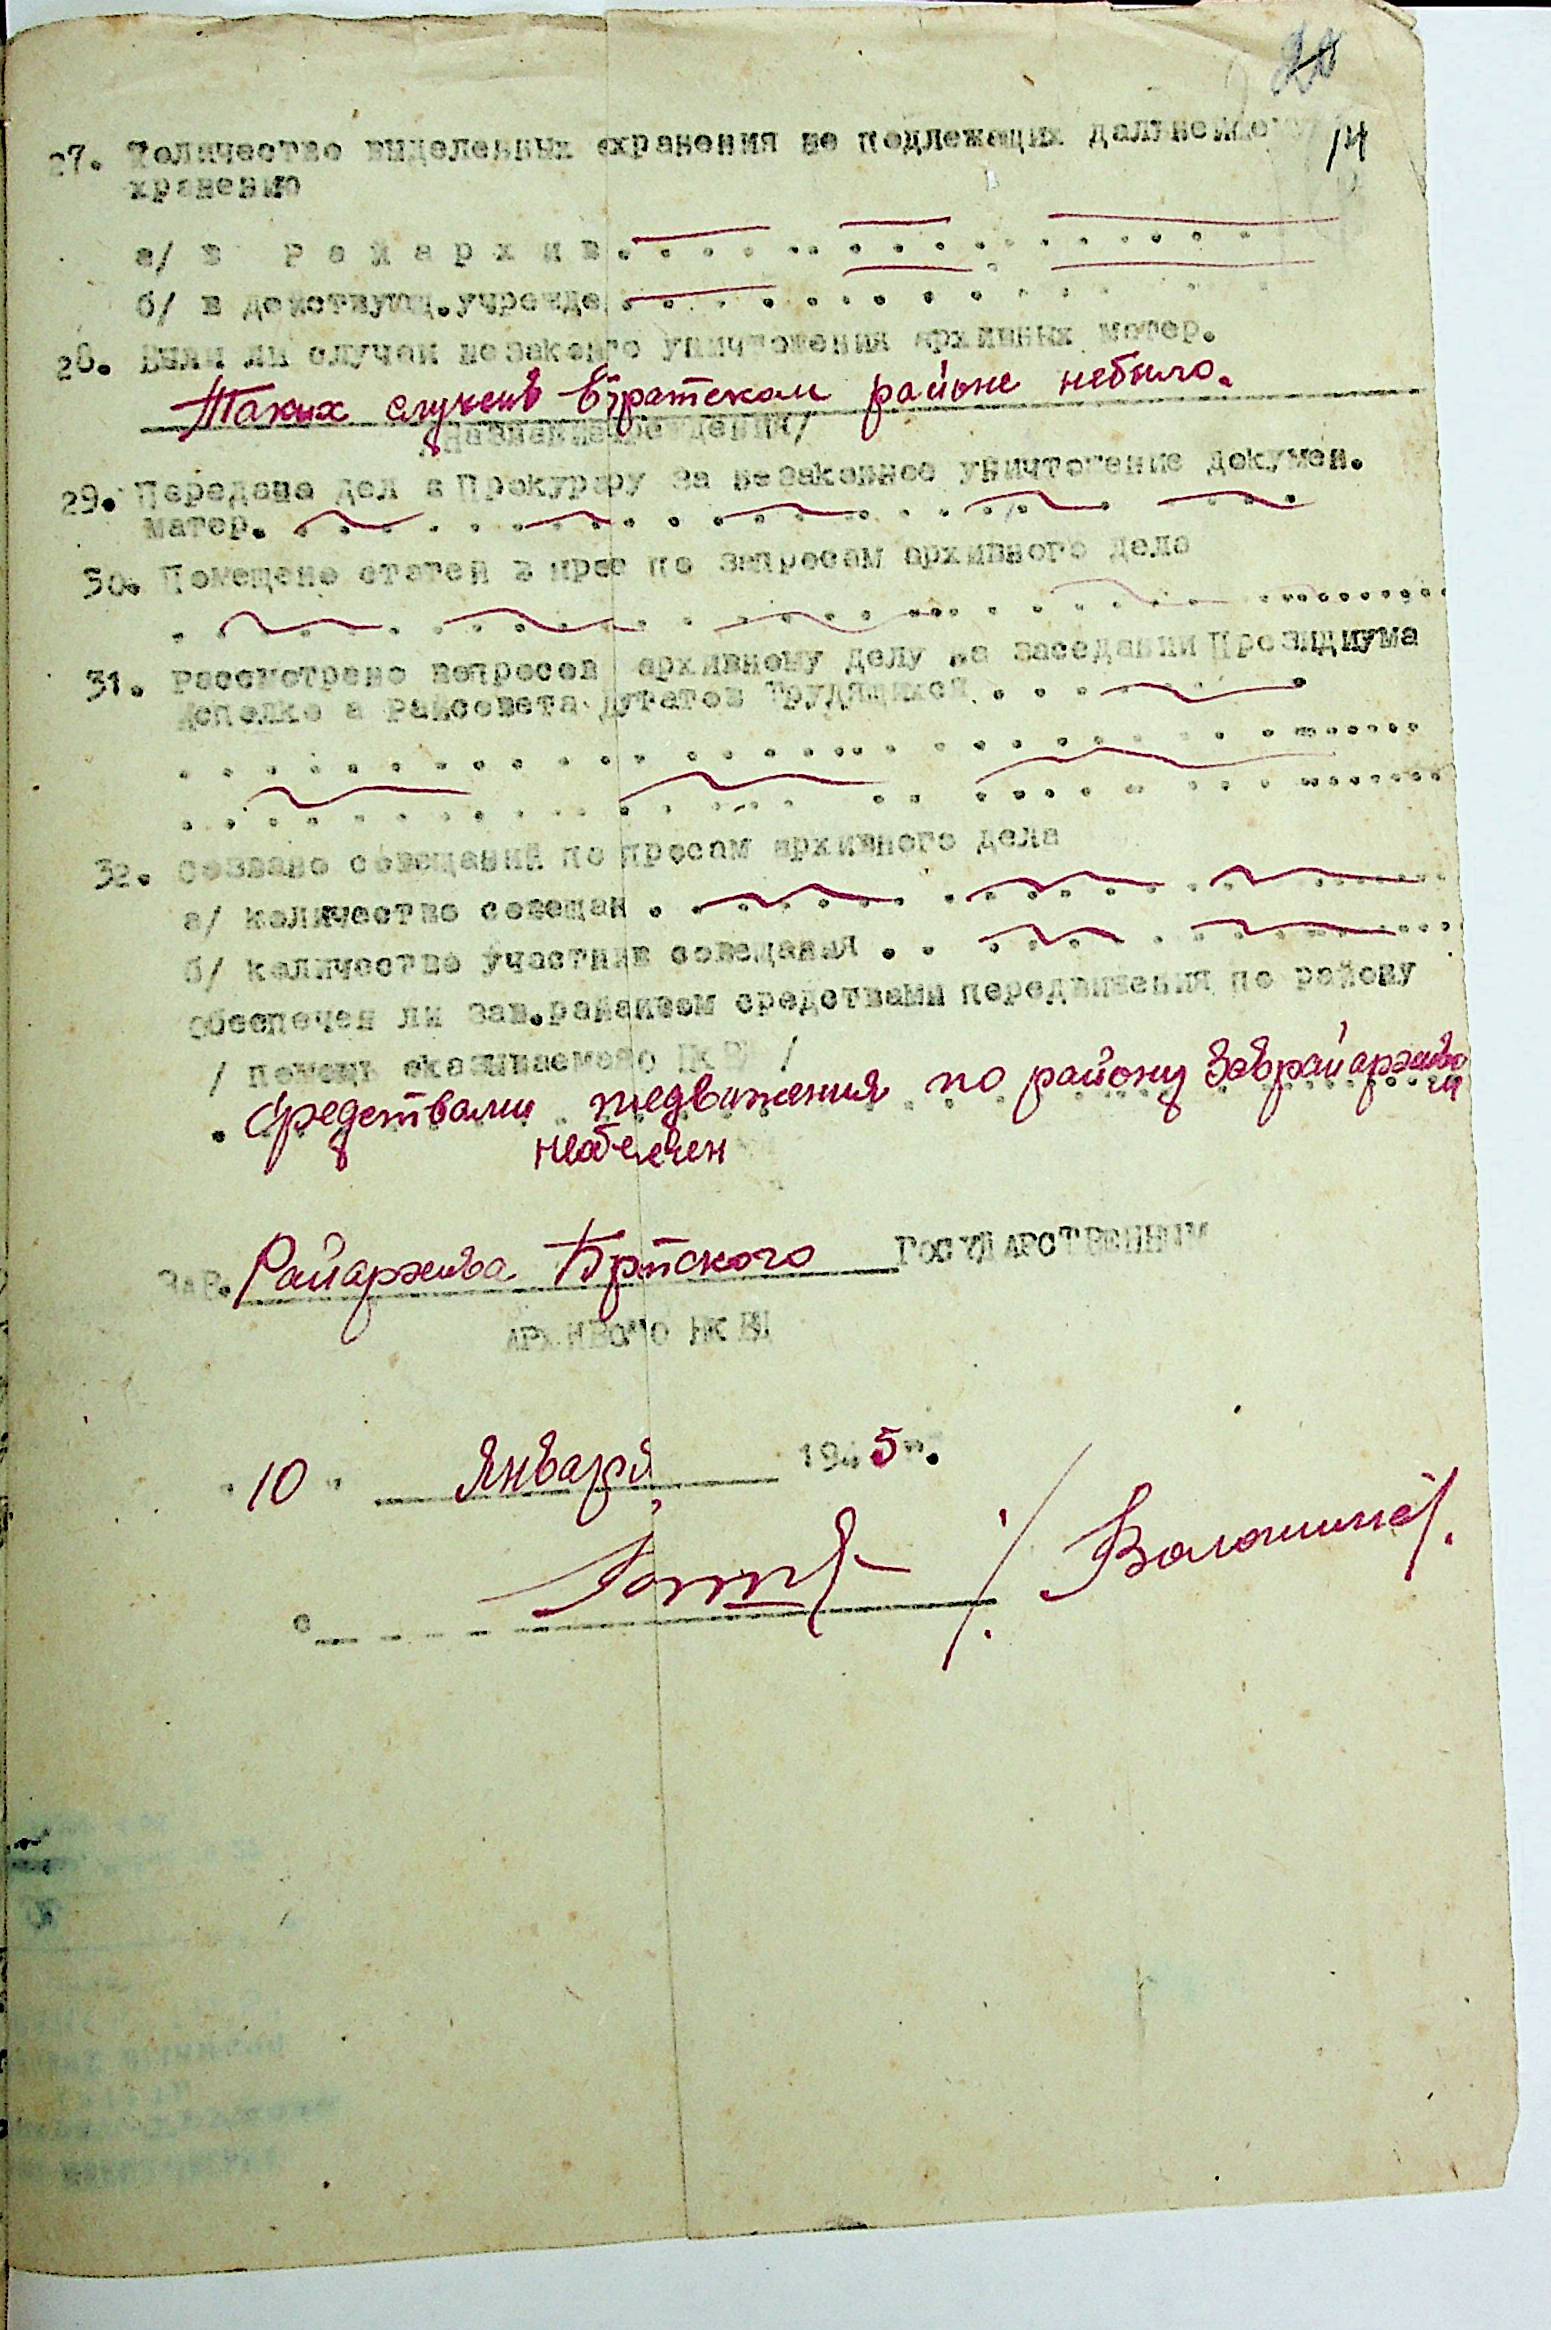 20
14
27. Количество выделенных охранения не подлежащих дальнейшему
хранению
а/ в Райархив. . . . . . . . . . . . . . .
б/ в действующ.учрежде. . . . . . . . . .
28. Были ли случаи незаконго уничтожения архивных матер.
Таких случаив Братском районе небыло.
29. Передано дел а Прокурору за незаконное уничтогение докумен.
матер. . . . . . . . . . . . . . . . .
30. Помещено статей в прес по запросам архивного дела
. . . . . . . . . . . . . . . . . . . .
31. Рассмотрено вопросов архивному делу на заседании Президиума
Исполко а Райсовета Дутатов Трудящихся . . . . . .
. . . . . . . . . . . . . . . . . . . .
. . . . . . . . . . . . . . . . . . . .
32. Созвано совещаний по просам архивного дела
а/ количество совещан . . . . . . . . . . .
б/ количество участнив совещания . . . . . . . . .
Обеспечен ли зав.райахивом средствами передвижения по району
/ помощь оказываемого НКВД /
. Средствами предвижения по району Заврайархивом
необечен
ЗАВ. Райархива Братского ГОСУДАРСТВЕННЫМ
АРХИВОМО НКВД
"10" Января 1945 г.
/ Волошина /.